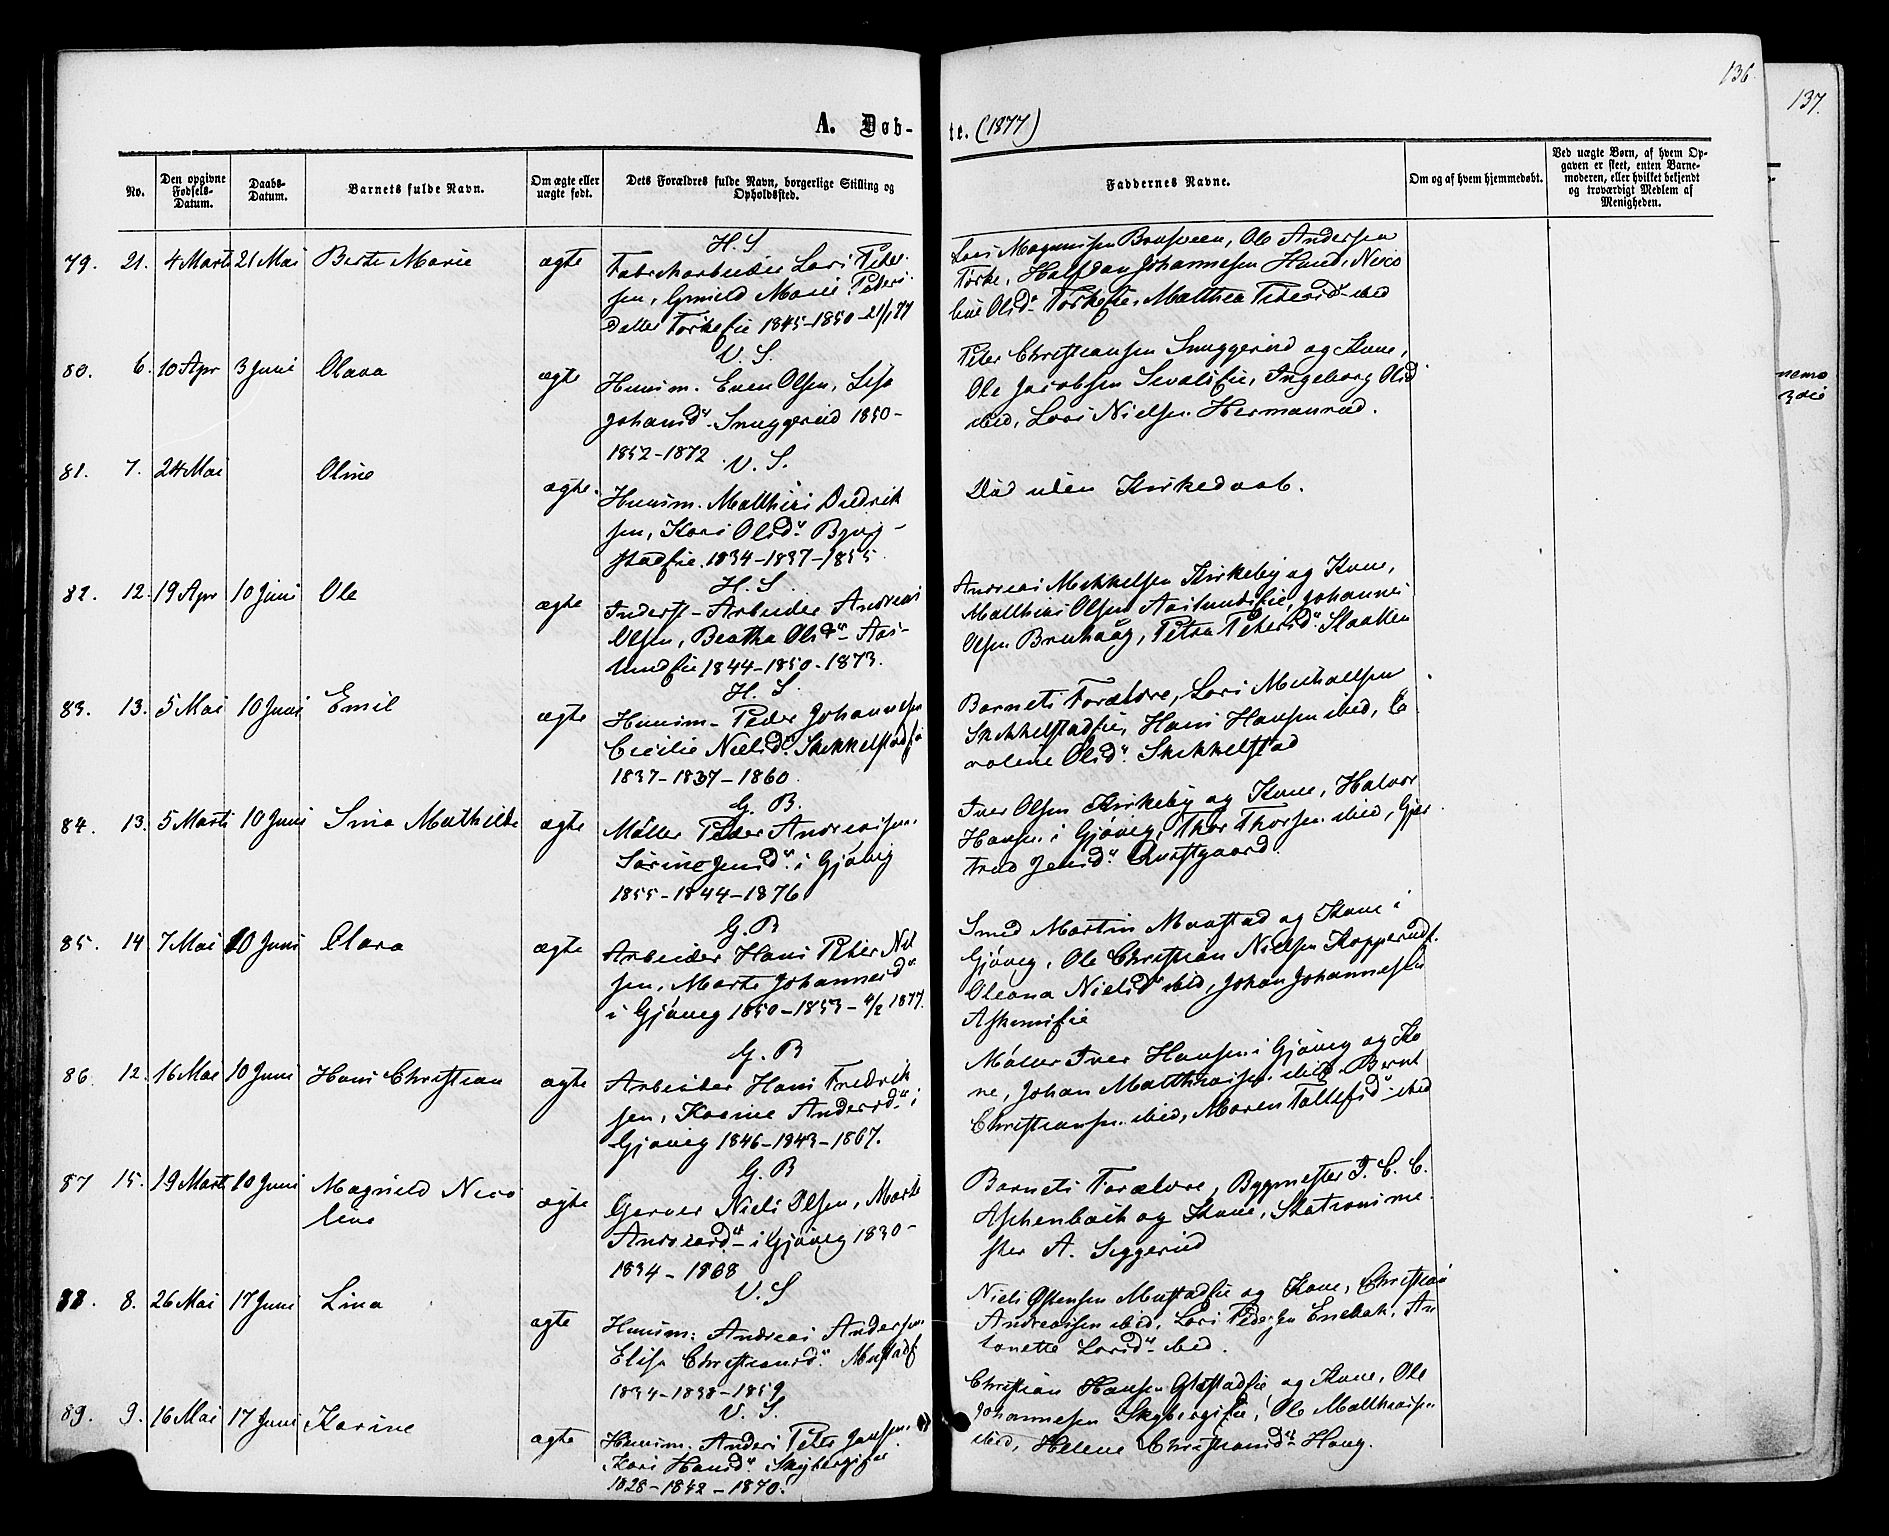 136.
137.
A. Døb-
te. (1877)
No.
Den opgivne Fødsels-Datum.
Daabs-Datum.
Barnets fulde Navn.
Om ægte eller uægte født.
Dets Forældres fulde Navn, borgerlige Stilling og Opholdssted.
Faddernes Navne.
Om og af hvem hjemmedøbt.
Ved uægte Børn, af hvem Op-
gaven er skeet, enten Barne-
moderen, eller hvilket bekjendt
og troværdigt Medlem af
Menigheden.
79. 21. 4 Marts 21 Mai Berte Marie ægte
H. S.
Lars Peter-
sen, Gunild Marie Peders
Datter 1845-1850-21/1 77
Lars Magnussen Braseveen, Ole Andersen
Halfdan Johannesen Hund, Nico
line Olsd. Mathea Petersd. ibid
80. 6. 10 Apr 3 Juni Olava ægte
V. S.
Huusm. Even Olsen, Lisa
Johansd. Snuggerud 1850-
1852-1872
Peter Christiansen Snuggerud og Kone,
Ole Jacobsen Ingeborg Olsd
ibid, Lars Nielsen Hermanrud.
81. 7. 24 Mai Oline ægte.
V. S.
Huusm. Matthias Diedrik
sen, Kari Olsd. Byrg-
stadeie. 1834-1837-1855
Død uden Kirkedaab.
82. 12. 19 Apr 10 Juni Ole ægte
H. S.
Inderst-Arbeider Andreas
Olsen, Beatha Olsd. Aas-
lundeie 1844-1850-1873.
Andreas Mikkelsen Kirkeby og Kone,
Matthias Olsen Aaslundeie, Johannes
Olsen Bruhaug, Petra Petersd. Slaatten
83. 13. 5 Mai 10 Juni Emil ægte
H. S.
Huusm. Peder Johannesen
Cecilie Nielsd. Skikkelstadeie
1837-1837-1860
Barnets Forældre, Lars Michaelsen
Skikkelstadeie, Hans Hansen ibid, Ca
roline Olsd. Skikkelstad
84. 13. 5 Marts 10 Juni Sina Mathilde ægte
G. B.
Møller Peder Andreassen
Sørine Jensd. i Gjøvig
1855-1844-1876
Iver Olsen Kirkeby og Kone, Halvor
Hansen i Gjøvig, Thor Thorsen ibid, Gjer
trud Jensd.
85. 14. 7 Mai 10 Juni Clara ægte
G. B
Arbeider Hans Peter Niel
sen, Marte Johannesd.
i Gjøvig 1850-1853-4/2 1877.
Smed Martin Mustad og Kone i
Gjøvig, Ole Christian Nielsen Kopperud
Oleana Nielsd ibid, Johan Johannesen
86. 12. 16 Mai 10 Juni Hans Christian ægte
G. B
Arbeider Hans Fredrik
sen, Karine Andersd. i
Gjøvig 1846-1843-1867.
Møller Iver Hansen i Gjøvig og Ko
ne, Johan Matthiassen ibid, Bernt
Christiansen ibid, Maren Tollefsd. ibid
87 15. 19 Marts 10 Juni Magnild Nico
line ægte
G. B
Garver Niels Olsen, Marte
Andreasd. i Gjøvig 1830-
1834-1868
Barnets Forældre, Bygmester T. C. C.
Aschenbach og Kone,
A. Seggerud
88. 8. 26 Mai 17 Juni Lina ægte
V. S
Huusm: Andreas Andersen
Elise Christiansd. Mustade
1834-1838-1859
Niels Østensen Mustadeie og Kone, Christian
Andreassen ibid, Lars Pedersen Enebak, An
tonette Larsd. ibid.
89. 9. 16 Mai 17 Juni Karine ægte
V. S.
Huusm. Anders Peter Jansen
Kari Hansd. Skybergseie
1828-1842-1870.
Christian Hansen Glæstadeie og Kone, Ole
Johannesen Skybergseie, Ole Matthiassen
ibid, Helene Christiansd. Haug.